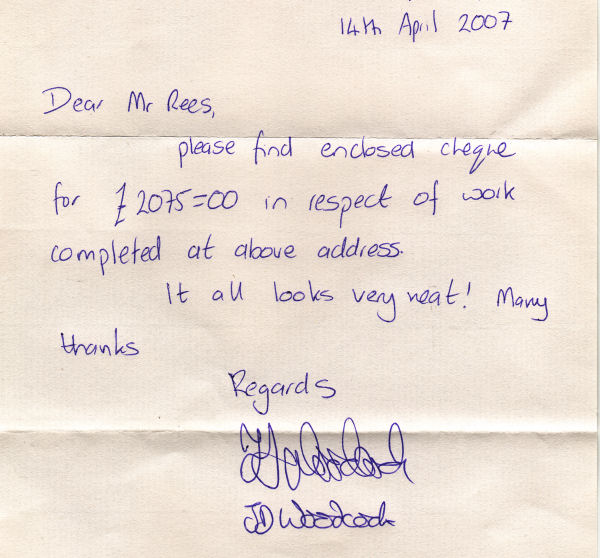 14th April 2007
Dear Mr Rees,
please find enclosed cheque
for £2075=00 in respect of work
completed at above address.
It all looks very neat! Many
thanks
Regards
JD Woodcock